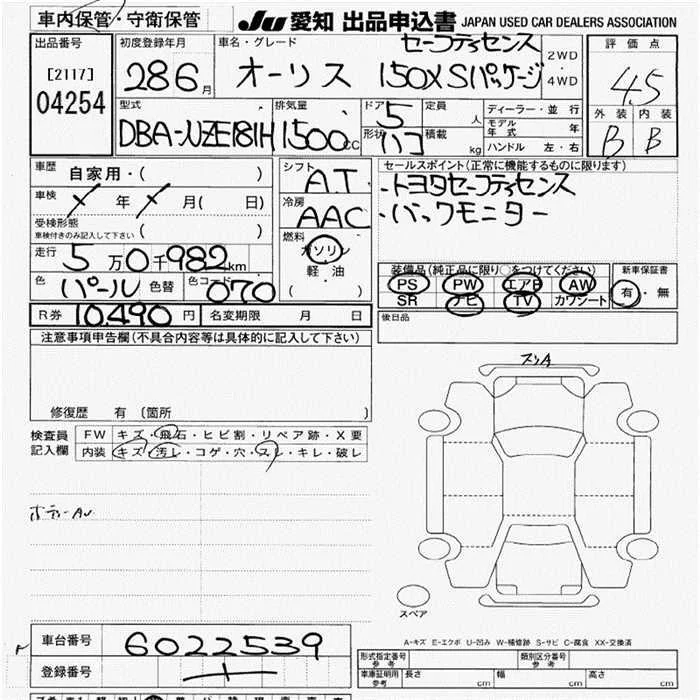 車内保管・守衛保管
JU 愛知 出品申込書 JAPAN USED CAR DEALERS ASSOCIATION
出品番号 初度登録年月 車名・グレード セーフティセンス 2WD・4WD 評価点
[2117]
04254 28 6月 オーリス 150X Sパッケージ 4.5
型式 排気量 ドア 5 定員 人 ディーラー・並行 外装 内装
DBA-NZE181H 1500cc 形状 ハコ 積載 kg モデル年式 年 B B
ハンドル 左・右
車歴 自家用・( ) シフト AT セールスポイント(正常に機能するものに限ります)
車検 年 月( 日) 冷房 AAC ・トヨタセーフティセンス
受検形態 ( ) ・バックモニター
車検付きのみ記入して下さい
燃料 ガソリン
軽・油
( ・ )
走行 5万0千982km
色 パール 色替 色コード 070
装備品(純正品に限り○をつけてください) 新車保証書
PS PW エアB AW 有・無
SR ナビ TV カワシート
R券 10,490円 名変期限 月 日 後日品
注意事項申告欄(不具合内容等は具体的に記入して下さい)
修復歴 有 〔箇所 〕
検査員 FW キズ・飛石・ヒビ割・リペア跡・X要
記入欄 内装 キズ・汚レ・コゲ・穴・スレ・キレ・破レ
スリA
ボディーAU
スペア
A-キズ E-エクボ U-凹み W-補修跡 S-サビ C-腐食 XX-交換済
車台番号 6022539
登録番号
形式指定番号 参考 類別区分番号 参考
車庫証明用 参考 長さ cm 幅 cm 高さ cm